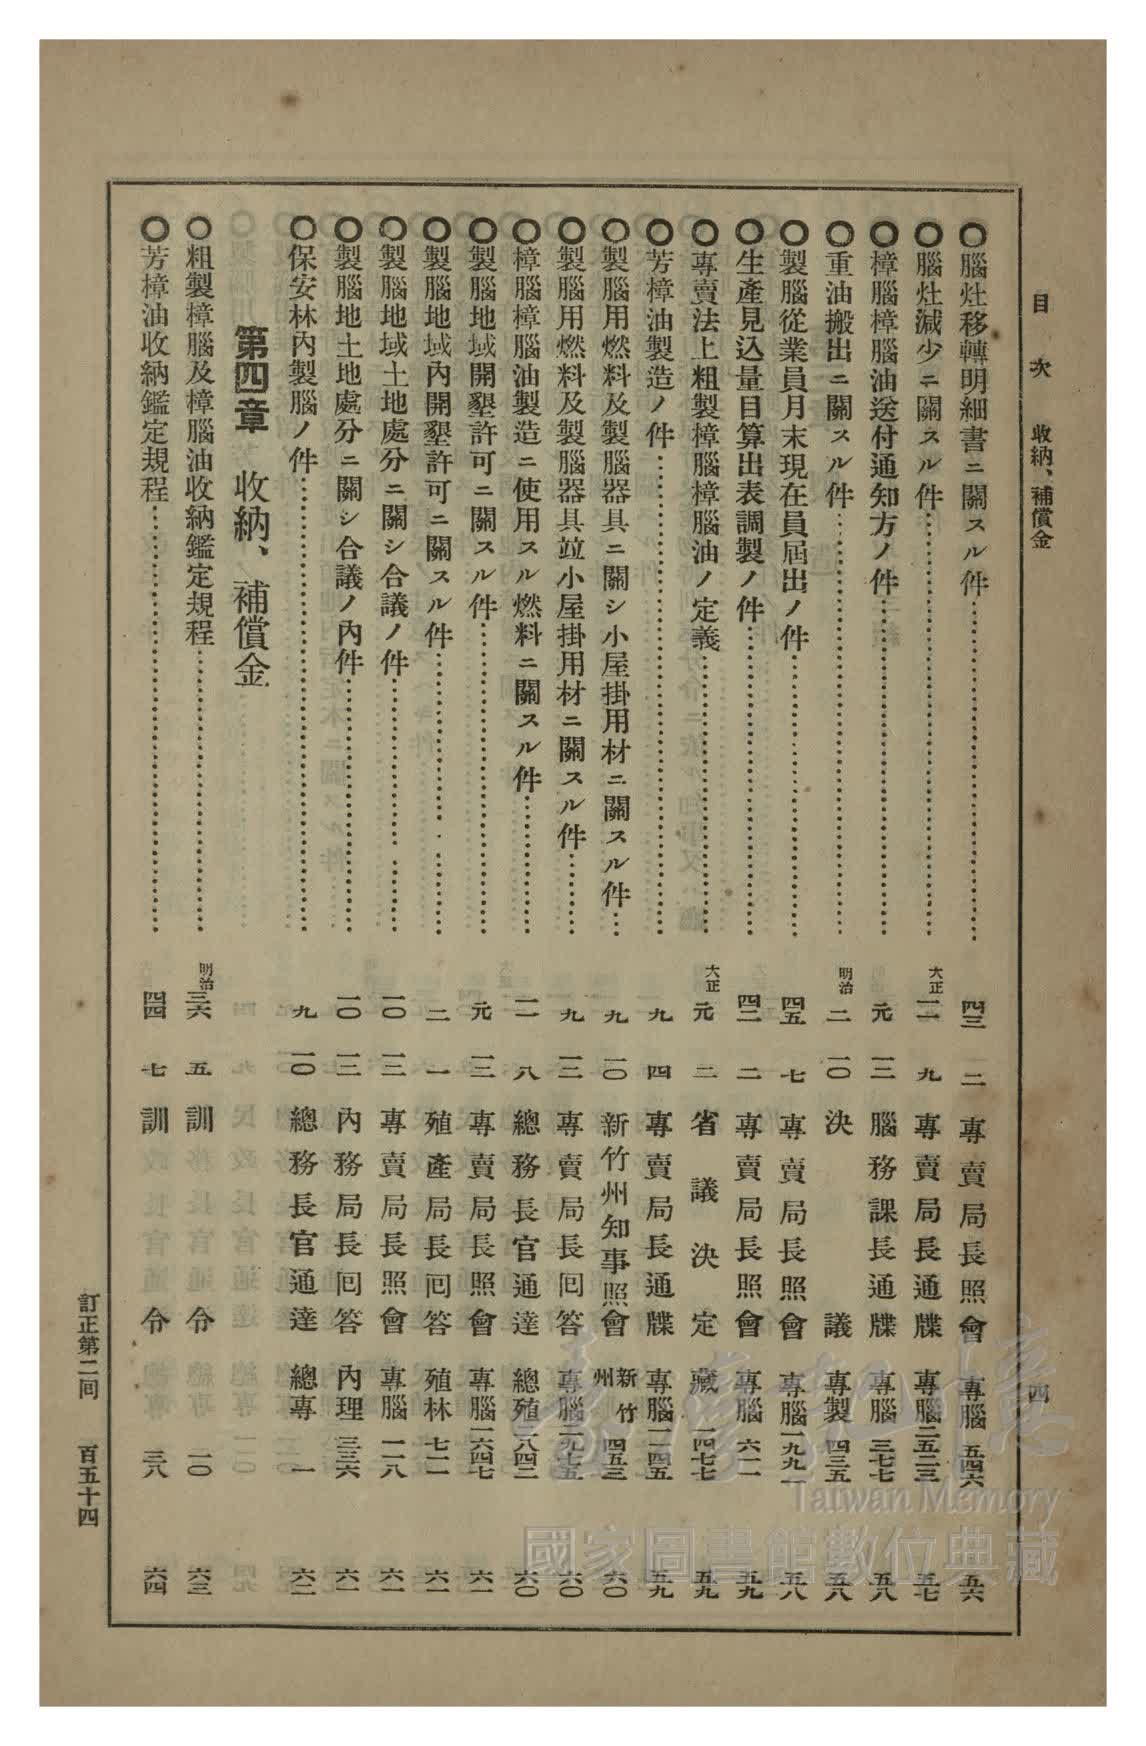 目次 收納、補償金 四
○腦灶移轉明細書ニ關スル件…… 四三 一二 專賣局長照會 專腦 五四六 五六
○腦灶減少ニ關スル件…… 大正 一一 九 專賣局長通牒 專腦 二五二三 五七
○樟腦樟腦油送付通知方ノ件…… 元 一二 腦務課長通牒 專腦 三七七 五八
○重油搬出ニ關スル件…… 明治 二 一〇 決議 專製 四三五 五八
○製腦從業員月末現在員屆出ノ件…… 四五 七 專賣局長照會 專腦 一九九一 五八
○生產見込量目算出表調製ノ件…… 四二 二 專賣局長照會 專腦 六一一 五九
○專賣法上粗製樟腦樟腦油ノ定義…… 大正 元 二 省議決定 藏 一四七七 五九
○芳樟油製造ノ件…… 九 四 專賣局長通牒 專腦 一二四五 五九
○製腦用燃料及製腦器具ニ關シ小屋掛用材ニ關スル件… 九 一〇 新竹州知事照會 新竹州 四五三 六〇
○製腦用燃料及製腦器具竝小屋掛用材ニ關スル件…… 九 一二 專賣局長回答 專腦 二九七五 六〇
○樟腦樟腦油製造ニ使用スル燃料ニ關スル件…… 二 八 總務長官通達 總殖 二八四二 六〇
○製腦地域開墾許可ニ關スル件…… 元 一二 專賣局長照會 專腦 一六四七 六一
○製腦地域內開墾許可ニ關スル件…… 二 一 殖產局長回答 殖林 七二一 六一
○製腦地域土地處分ニ關シ合議ノ件…… 一〇 一二 專賣局長照會 專腦 一一八 六一
○製腦地土地處分ニ關シ合議ノ內件…… 一〇 一二 內務局長回答 內理 三三六 六一
○保安林內製腦ノ件…… 九 一〇 總務長官通達 總專 一 六二
第四章 收納、補償金
○粗製樟腦及樟腦油收納鑑定規程…… 明治 三六 五 訓令 一〇 六三
○芳樟油收納鑑定規程…… 四四 七 訓令 三八 六四
訂正第二回 百五十四
臺灣記憶
Taiwan Memory
國家圖書館數位典藏